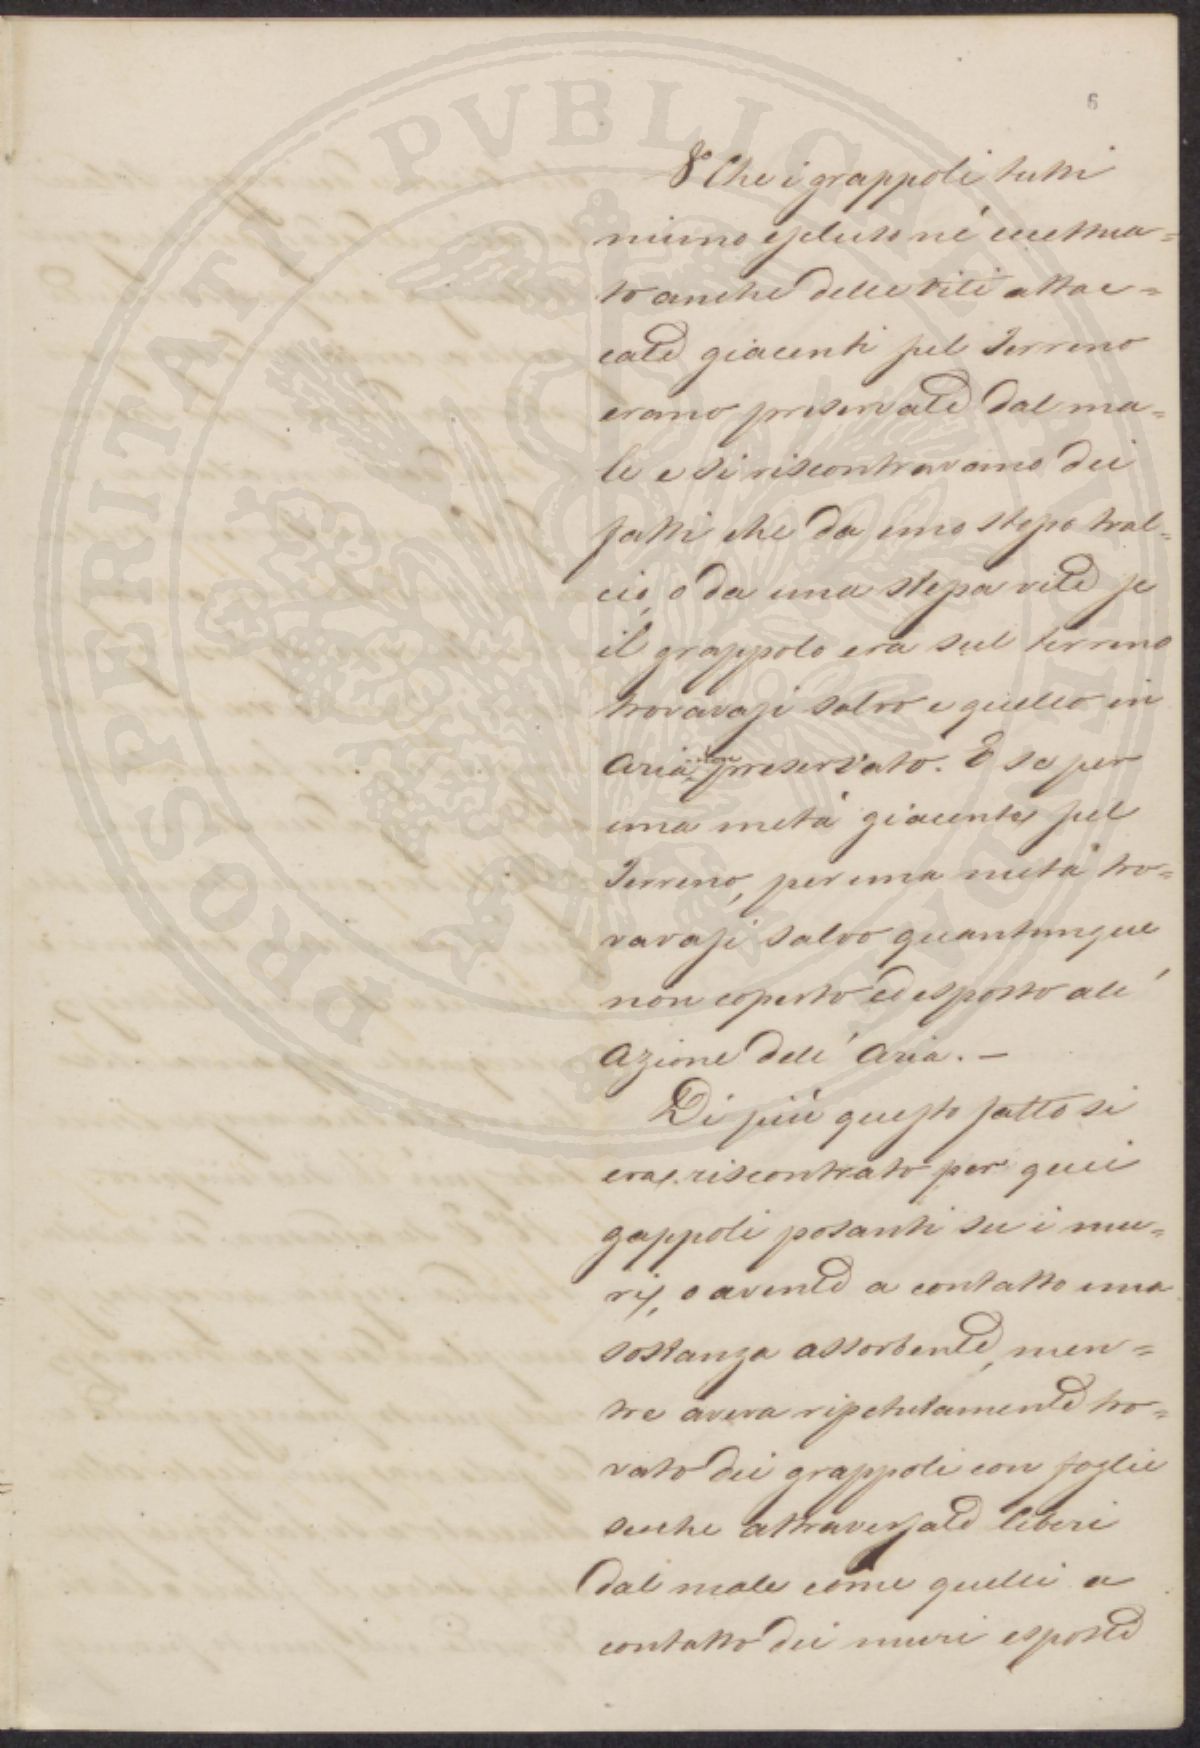 6
8° Che i grappoli tutti
niuno escluso né eccettua=
to anche delle viti attac=
cate giacenti sul Terreno
erano preservate dal ma=
le e si riscontravano dei
fatti che da uno stesso tral=
cio, o da una stessa vite se
il grappolo era sul terreno
trovavasi salvo e quello in
Aria non preservato. E se per
una metà giacente sul
Terreno, per una metà tro=
vavasi salvo quantunque
non coperto ed esposto all'
Azione dell'Aria. —
Di più questo fatto si
era riscontrato per quei
gappoli posanti su i mu=
ri, o avente a contatto una
sostanza assorbente, men=
tre aveva ripetutamente tro=
vato dei grappoli con foglie
secche attraversate liberi
dal male come quelli a
contatto dei muri esposte
PROSPERITATI PVBLICAE AVGENDAE